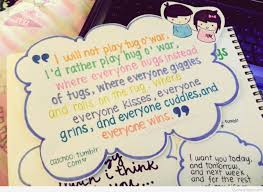 " I will not play tug o' war,
I'd rather play hug o' war,
where everyone hugs instead
of tugs, where everyone giggles
and rolls on the rug, where
everyone kisses, everyone
grins, and everyone cuddles, and
everyone wins. "
tumblr
com
I want you today,
and tomorrow,
and next week
and for the rest of
which i think
you